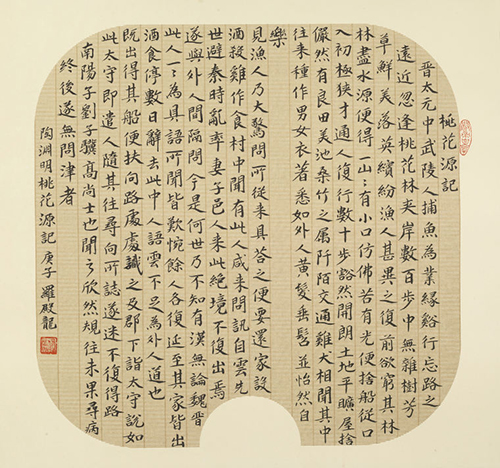 桃花源記
晋太元中武陵人捕魚為業緣谿行忘路之
遠近忽逢桃花林夹岸數百步中無雜樹芳
草鮮美落英繽紛漁人甚異之復前欲窮其林
林盡水源便得一山:有小口仿佛若有光便捨船從口
入初極狹才通人復行數十步豁然開朗土地平曠屋捨
儼然有良田美池桑竹之属阡陌交通雞犬相聞其中
往来種作男女衣著悉如外人黄髮垂髫並怡然自
樂
見漁人乃大驚問所從来具答之便要還家設
酒殺雞作食村中聞有此人咸来問訊自雲先
世避秦時亂率妻子邑人来此絕境不復出焉
遂與外人間隔問今是何世乃不知有漢無論魏晋
此人一:為具語所聞皆歎惋餘人各復延至其家皆出
酒食停數日辭去此中人語雲不足為外人道也
既出得其船便扶向路處處識之及郡下詣太守說如
此太守即遣人隨其往尋向所誌遂迷不復得路
南陽子劉子驥高尚士也聞了欣然規往未果尋病
終後遂無問津者
陶淵明桃花源記庚子羅殿龍